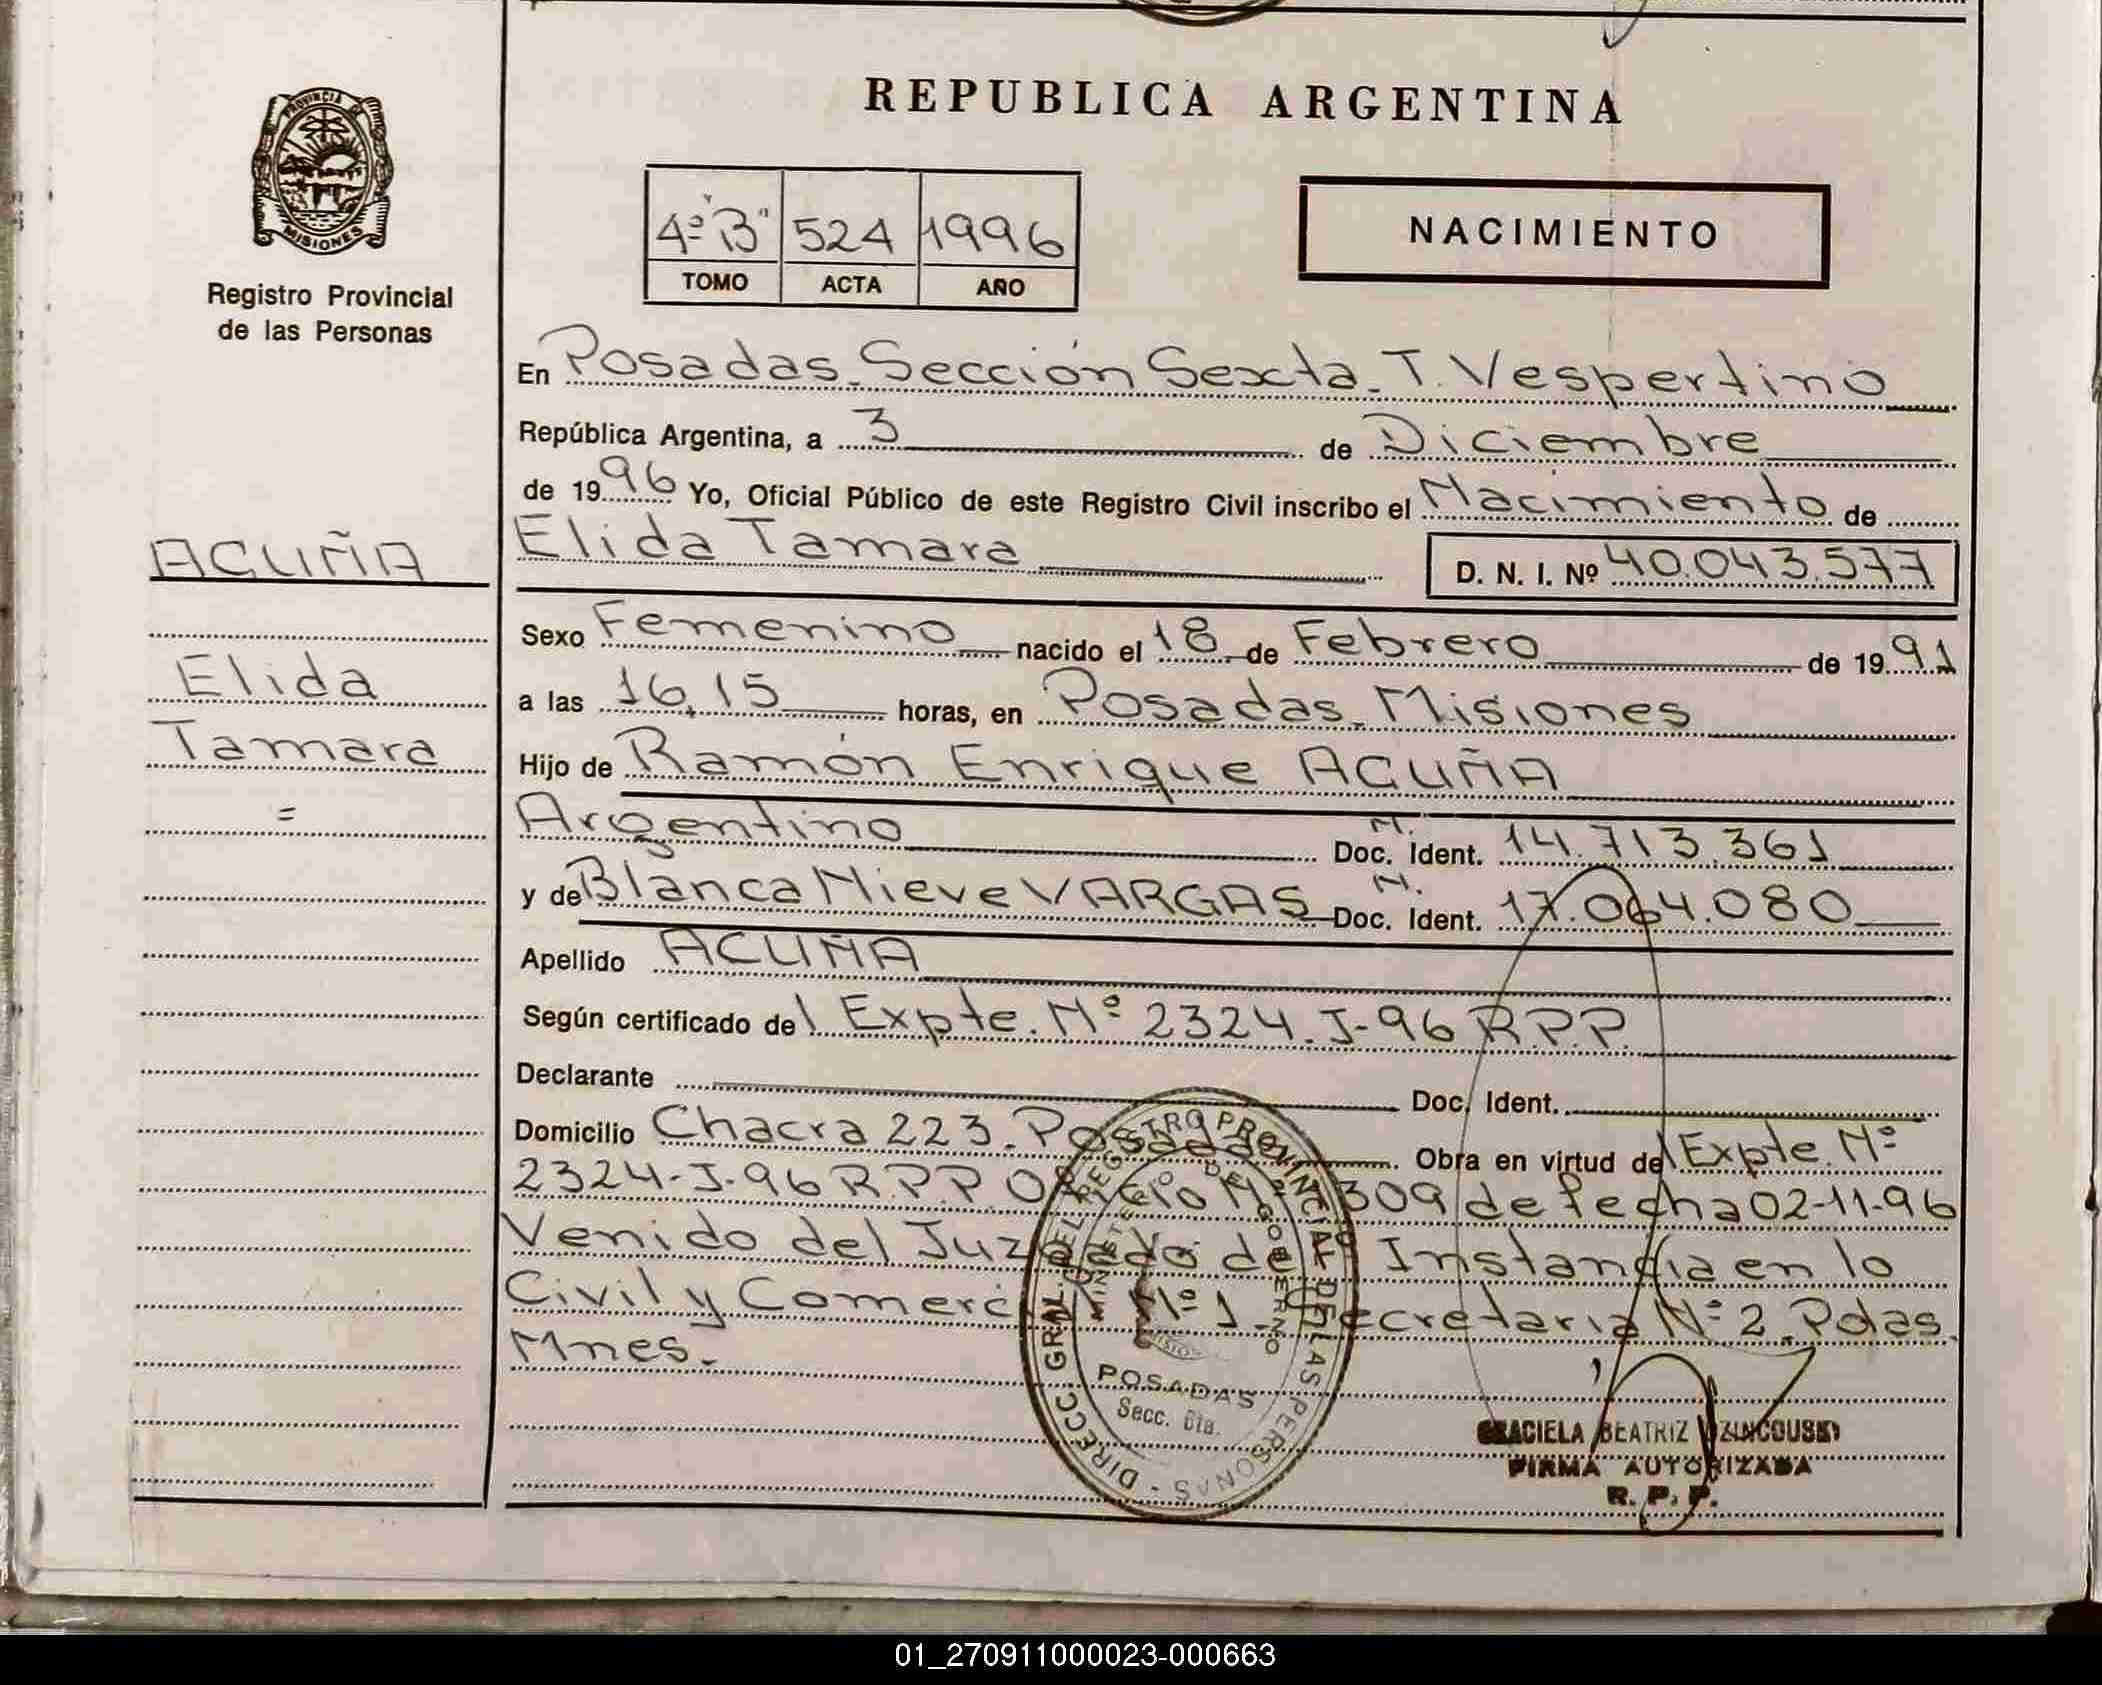 REPUBLICA ARGENTINA
PROVINCIA DE
MISIONES
Registro Provincial
de las Personas
4º "B" 524 1996
TOMO ACTA AÑO
NACIMIENTO
En Posadas. Sección Sexta. T. Vespertino
República Argentina, a 3 de Diciembre
de 1996 Yo, Oficial Público de este Registro Civil inscribo el Nacimiento de
ACUÑA
Elida Tamara D. N. I. Nº 40.043.577
Sexo Femenino nacido el 18 de Febrero de 1991
Elida
a las 16,15 horas, en Posadas. Misiones
Tamara
Hijo de Ramón Enrique ACUÑA
=
Argentino Doc. N. Ident. 14.713.361
y de Blanca Nieve VARGAS Doc. N. Ident. 17.064.080
Apellido ACUÑA
Según certificado del Expte. Nº 2324. J-96 R.P.P.
Declarante Doc. Ident.
Domicilio Chacra 223. Posadas Obra en virtud del Expte. Nº
2324-J-96 R.P.P. Oficio Nº 309 de fecha 02-11-96
Venido del Juzgado de Instancia en lo
Civil y Comerc Nº 1. Secretaria Nº 2. Pdas.
Mnes.
DIRECC. GRAL. DEL REGISTRO PROVINCIAL DE LAS PERSONAS
MINISTERIO DE GOBIERNO
POSADAS
Secc. 6ta.
GRACIELA BEATRIZ
FIRMA AUTORIZADA
R. P. P.
01_270911000023-000663